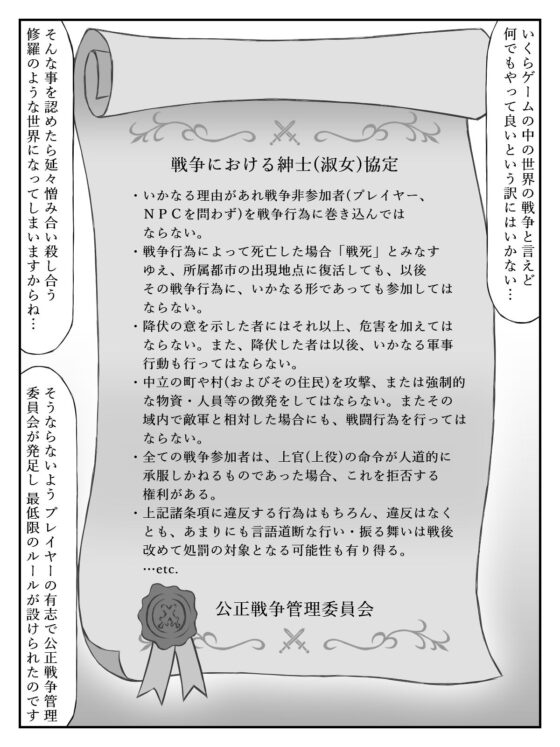 いくらゲームの中の世界の戦争と言えど
何でもやって良いという訳にはいかない…
戦争における紳士(淑女)協定
・いかなる理由があれ戦争非参加者(プレイヤー、
ＮＰＣを問わず)を戦争行為に巻き込んでは
ならない。
・戦争行為によって死亡した場合「戦死」とみなす
ゆえ、所属都市の出現地点に復活しても、以後
その戦争行為に、いかなる形であっても参加しては
ならない。
・降伏の意を示した者にはそれ以上、危害を加えては
ならない。また、降伏した者は以後、いかなる軍事
行動も行ってはならない。
・中立の町や村(およびその住民)を攻撃、または強制的
な物資・人員等の徴発をしてはならない。またその
域内で敵軍と相対した場合にも、戦闘行為を行っては
ならない。
・全ての戦争参加者は、上官(上役)の命令が人道的に
承服しかねるものであった場合、これを拒否する
権利がある。
・上記諸条項に違反する行為はもちろん、違反はなく
とも、あまりにも言語道断な行い・振る舞いは戦後
改めて処罰の対象となる可能性も有り得る。
…etc.
公正戦争管理委員会
そんな事を認めたら延々憎み合い殺し合う
修羅のような世界になってしまいますからね…
そうならないよう プレイヤーの有志で公正戦争管理
委員会が発足し 最低限のルールが設けられたのです